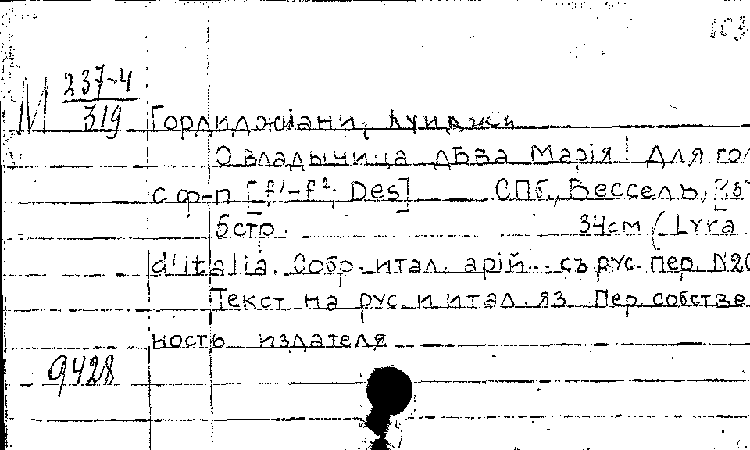 103
М 237-4
319
Гордиджіани, Луиджи
О владычица дѣва Марія! Для гол
с ф-п [f¹-f², Des] СПб., Бессель,
6стр. 34см (Lyra
d'Italia. Собр. итал. арій.. съ рус. пер. N20
Текст на рус. и итал. яз. Пер. собстве
ность издателя
9428